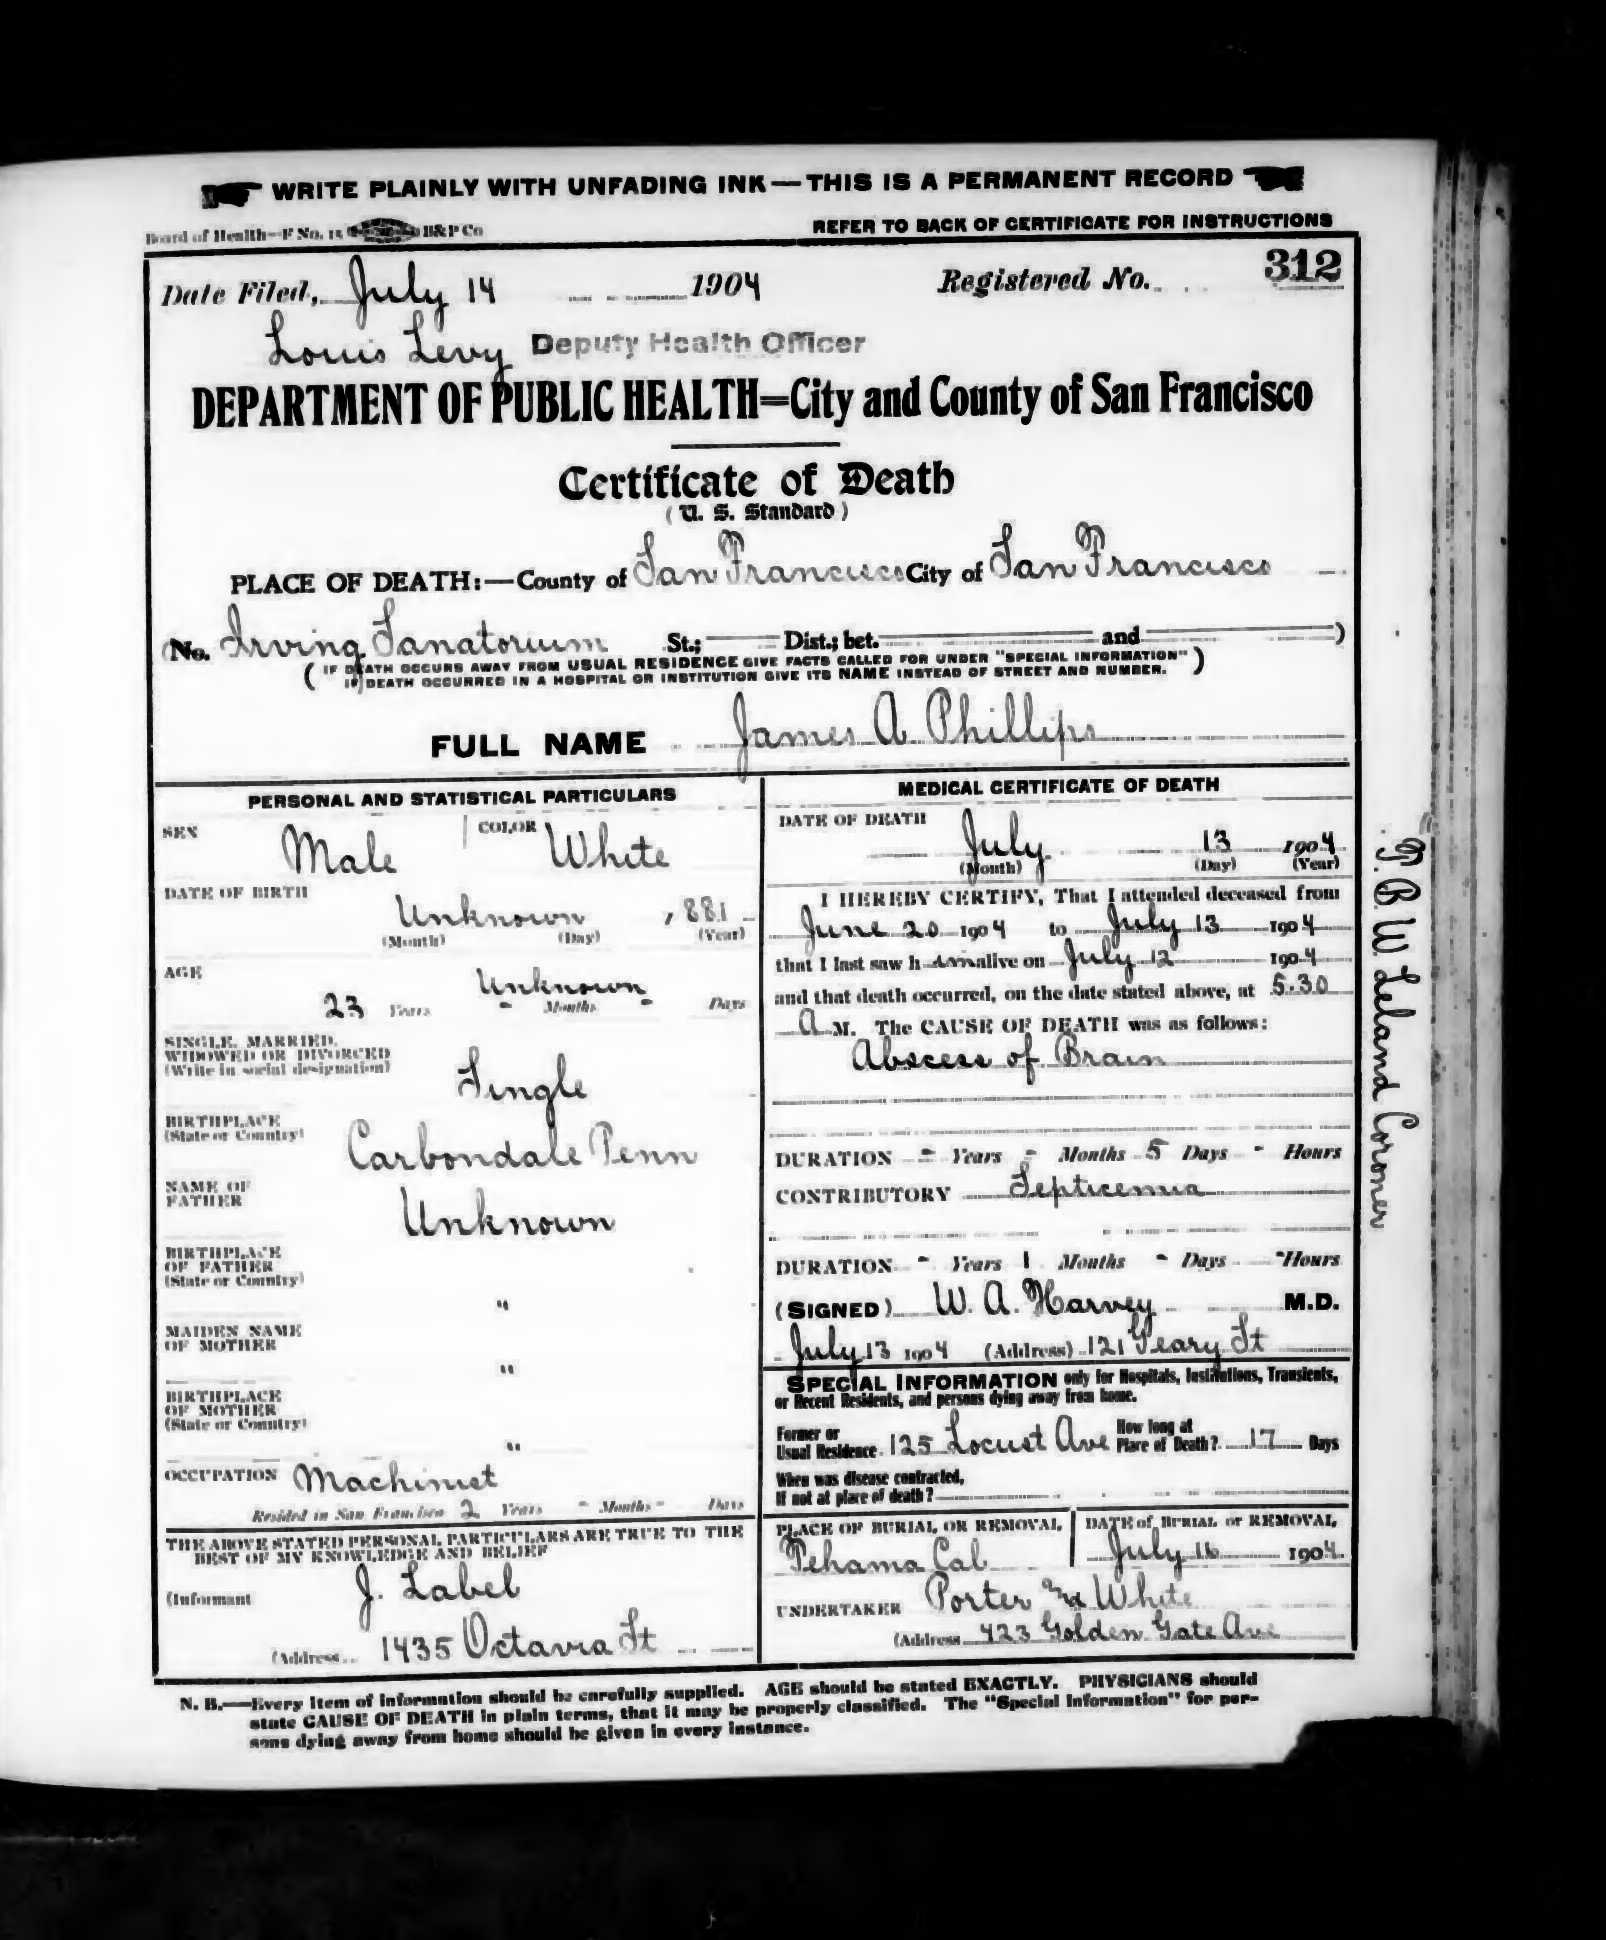 WRITE PLAINLY WITH UNFADING INK—THIS IS A PERMANENT RECORD
Board of Health—F No. 15 B&P Co
REFER TO BACK OF CERTIFICATE FOR INSTRUCTIONS
Date Filed, July 14 1904 Registered No. 312
Louis Levy Deputy Health Officer
DEPARTMENT OF PUBLIC HEALTH=City and County of San Francisco
Certificate of Death
(U. S. Standard)
PLACE OF DEATH:—County of San Francisco City of San Francisco
(No. Irving Sanatorium St.; Dist.; bet. and )
(IF DEATH OCCURS AWAY FROM USUAL RESIDENCE GIVE FACTS CALLED FOR UNDER "SPECIAL INFORMATION"
IF DEATH OCCURRED IN A HOSPITAL OR INSTITUTION GIVE ITS NAME INSTEAD OF STREET AND NUMBER.)
FULL NAME James A Phillips
PERSONAL AND STATISTICAL PARTICULARS
SEX Male COLOR White
DATE OF BIRTH
Unknown , 881
(Month) (Day) (Year)
AGE
23 Years Unknown - Months - Days
SINGLE, MARRIED,
WIDOWED OR DIVORCED
(Write in social designation)
Single
BIRTHPLACE
(State or Country)
Carbondale Penn
NAME OF
FATHER
Unknown
BIRTHPLACE
OF FATHER
(State or Country)
"
MAIDEN NAME
OF MOTHER
"
BIRTHPLACE
OF MOTHER
(State or Country)
"
OCCUPATION Machinist
Resided in San Francisco 2 Years - Months - Days
THE ABOVE STATED PERSONAL PARTICULARS ARE TRUE TO THE
BEST OF MY KNOWLEDGE AND BELIEF
(Informant J. Label
(Address 1435 Octavia St
MEDICAL CERTIFICATE OF DEATH
DATE OF DEATH
July 13 1904
(Month) (Day) (Year)
I HEREBY CERTIFY, That I attended deceased from
June 20 1904 to July 13 1904
that I last saw h im alive on July 12 1904
and that death occurred, on the date stated above, at 5.30
A M. The CAUSE OF DEATH was as follows:
Abscess of Brain
DURATION - Years - Months 5 Days - Hours
CONTRIBUTORY Septicemia
DURATION - Years 1 Months - Days - Hours
(SIGNED) W. A. Harvey M.D.
July 13 1904 (Address) 121 Geary St
SPECIAL INFORMATION only for Hospitals, Institutions, Transients,
or Recent Residents, and persons dying away from home.
Former or
Usual Residence 125 Locust Ave
How long at
Place of Death? 17 Days
When was disease contracted,
If not at place of death?
PLACE OF BURIAL OR REMOVAL
Tehama Cal
DATE of BURIAL or REMOVAL
July 16 1904
UNDERTAKER Porter and White
(Address 423 Golden Gate Ave
N. B.—Every item of information should be carefully supplied. AGE should be stated EXACTLY. PHYSICIANS should
state CAUSE OF DEATH in plain terms, that it may be properly classified. The "Special Information" for per-
sons dying away from home should be given in every instance.
W. Leland Coroner